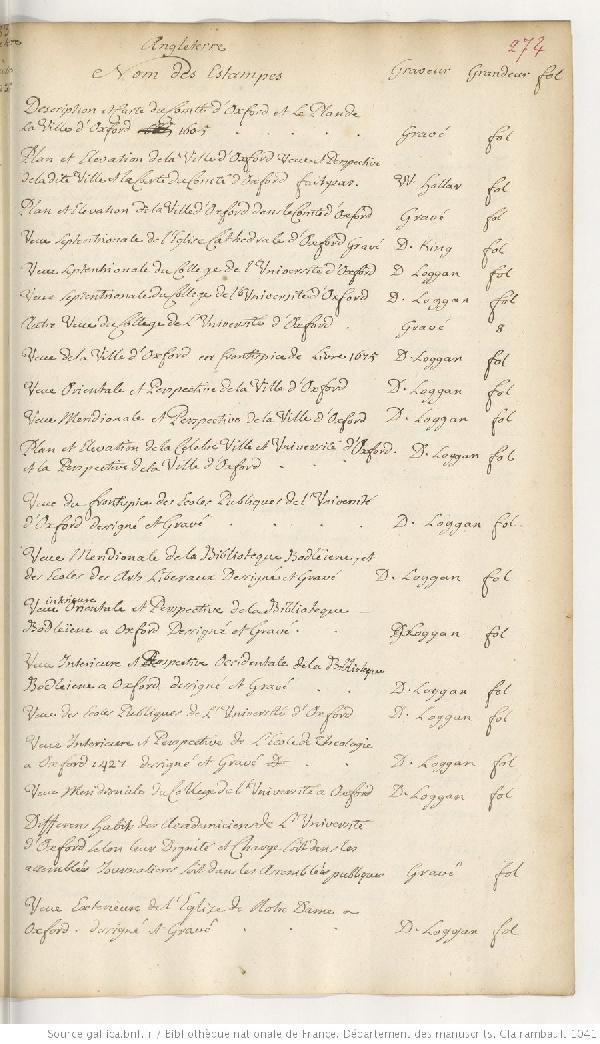 Angleterre
274
Nom des Estampes Graveur Grandeur fol
Description et Carte du Comté d'Oxford et le Plan de
la Ville d'Oxford 1605 Gravé fol
Plan et Elevation de la Ville d'Oxford Veue et Perspective
de la dite Ville et la Carte du Comté d'Oxford fait par. W Hollar fol
Plan et Elevation de la Ville d'Oxford dans le Comté d'Oxford Gravé fol
Veue Septentrionale de l'Eglise Cathedrale d'Oxford Gravé D. King fol
Veue Septentrionale du College de l'Université d'Oxford D Loggan fol
Veue Septentrionale du College de l'Université d'Oxford D. Loggan fol
Autre Veue du College de L'Université d'Oxford Gravé 8
Veue de la Ville d'Oxford en frontispice de Livre 1675 D. Loggan fol
Veue Orientale et Perspective de la Ville d'Oxford D. Loggan fol
Veue Meridionale et Perspective de la Ville d'Oxford D. Loggan fol
Plan et Elevation de la Celebre Ville et Université d'Oxford. D. Loggan fol
et la Perspective de la Ville d'Oxford
Veue du frontispice des Ecoles Publiques de l'Université
d'Oxford dessigné et Gravé D. Loggan fol.
Veue Meridionale de la Biblioteque Bodleiene, et
des Ecoles des Arts Liberaux Dessigné et Gravé D. Loggan fol
Veue interieure Orientale et Perspective de la Biblioteque
Bodleiene a Oxford Dessigné et Gravé. D Loggan fol
Veue Interieure et Perspective Occidentale de la Biblioteque
Bodleiene a Oxford dessigné et Gravé D. Loggan fol
Veue des Ecoles Publiques de L'Université d'Oxford D. Loggan fol
Veue Interieure et Perspective de L'école de Theologie
a Oxford 1427 dessigné et Gravé D. Loggan fol
Veue Meridionale du College de l'Université a Oxford D. Loggan fol
Differens habits des Academiciens de L'Université
d'Oxford selon leur Dignité et Charge soit dans les
assemblées Journalieres soit dans les Assemblées publiques Gravé fol
Veue Exterieure de l'Eglise de Notre Dame a
Oxford. dessigné et Gravé D. Loggan fol
Source gallica.bnf.fr / Bibliothèque nationale de France. Département des manuscrits. Clairambault 1041